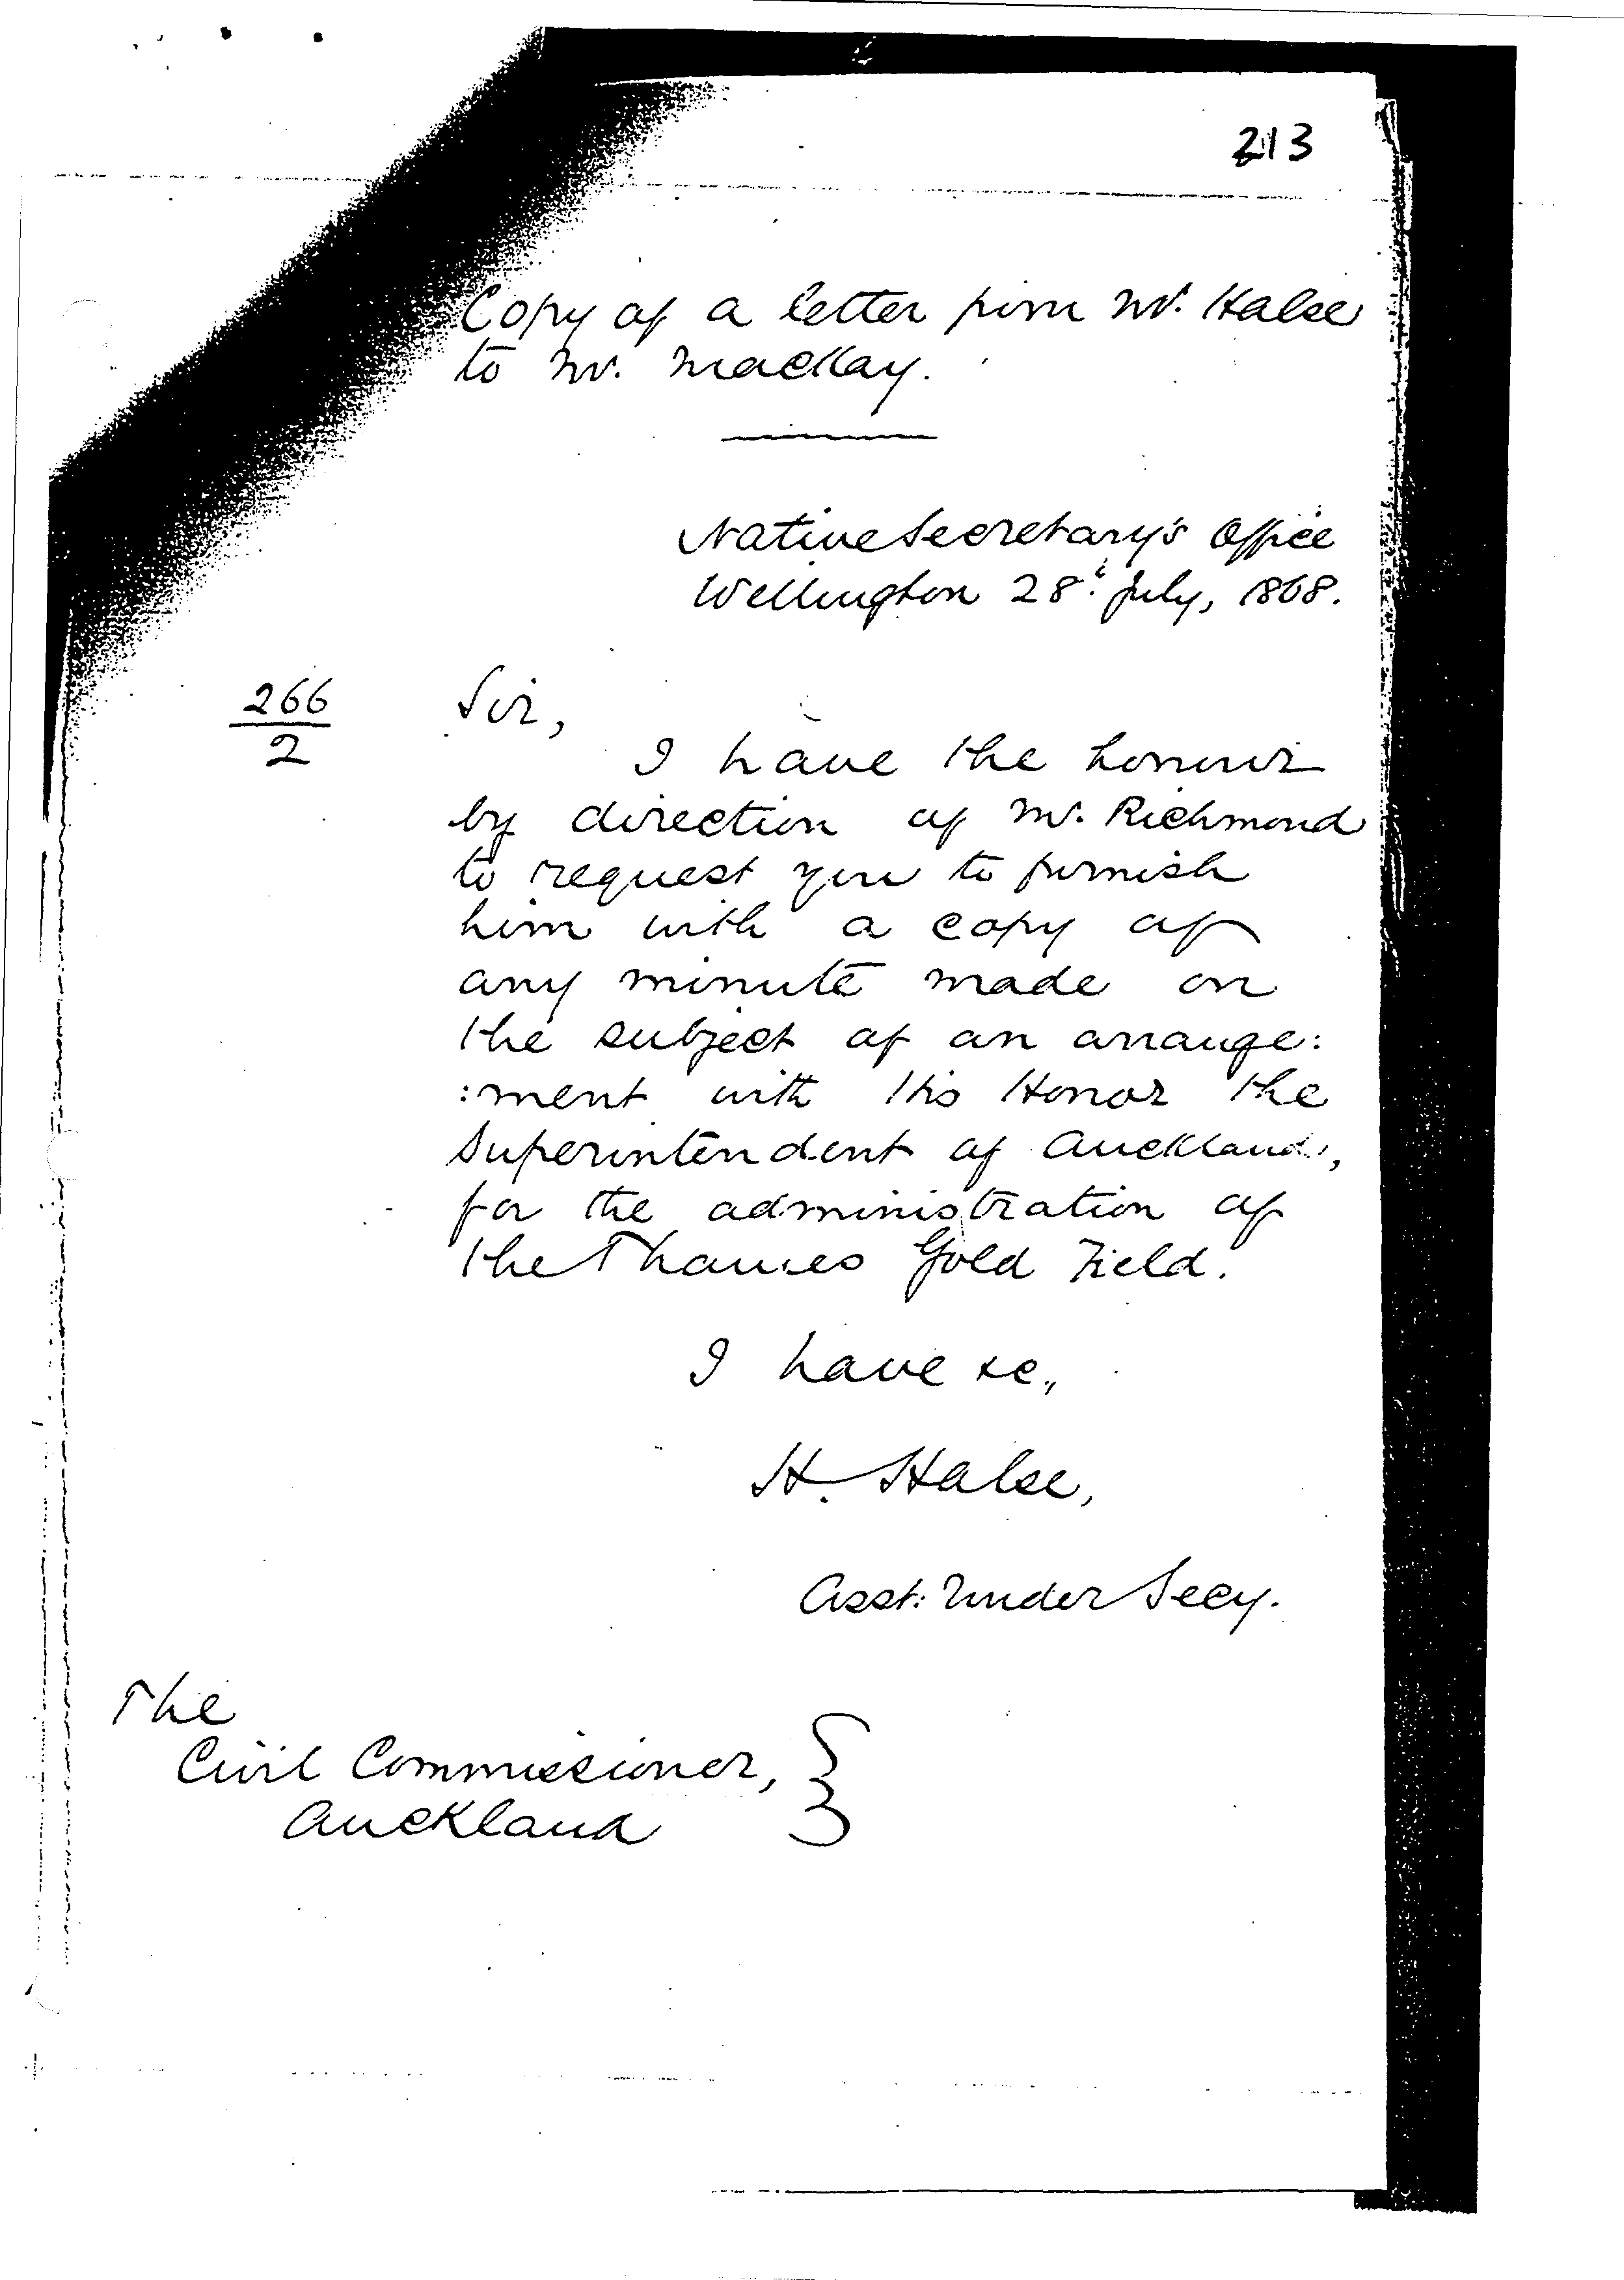 213
Copy of a letter from Mr. Halse
to Mr. Mackay.
Native Secretary's Office
Wellington 28t. July, 1868.
266
2
Sir,
I have the honour
by direction of Mr. Richmond
to request you to furnish
him with a copy of
any minute made on
the subject of an arrange:
:ment with His Honor the
Superintendent of Auckland,
for the administration of
the Thames Gold Field.
I have &c.,
H. Halse,
Asst: Under Secy.
The
Civil Commissioner,
Auckland